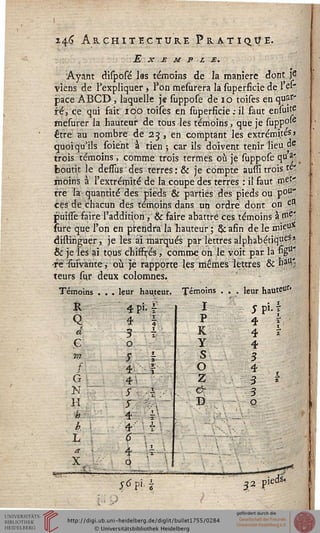 246 ARCHITECTURE PRATIQUE.
EXEMPLE.
Ayant disposé les témoins de la maniere dont je
viens de l'expliquer, l'on mesurera la superficie de l'es-
pace ABCD, laquelle je suppose de 10 toises en quar-
ré, ce qui fait 100 toises en superficie : il faut ensuite
mesurer la hauteur de tous les témoins, que je suppose
être au nombre de 23, en comptant les extrémités,
quoiqu'ils soient à rien ; car ils doivent tenir lieu de
trois témoins, comme trois termes où je suppose qu'a-
boutit le dessus des terres : & je compte aussi trois té-
moins à l'extrémité de la coupe des terres : il faut met-
tre la quantité des pieds & parties des pieds ou pou-
ces de chacun des témoins dans un ordre dont on en
puisse faire l'addition, & faire abattre ces témoins à me-
sure que l'on en prendra la hauteur ; & afin de le mieux
distinguer, je les ai marqués par lettres alphabétiques,
& je les ai tous chiffrés, comme on le voit par la figu-
re suivante, où je rapporte les mêmes lettres & hau-
teurs sur deux colomnes.
Témoins . . . leur hauteur. Témoins . . . leur hauteur.
R 4 pi. I 5 pi.
Q 4 P 4
d 3 K 4
C 0 Y 4
m 5 S 3
f 4 O 4
G 4 Z 3
N 5 & 3
H 5 D 0
h 4
b 4
L 6
a 4
X 0
56 pi. 32 pieds.
UNIVERSITÄTS-
BIBLIOTHEK
HEIDELBERG
http://digi.ub.uni-heidelberg.de/diglit/bullet1755/0284
© Universitätsbibliothek Heidelberg
gefördert durch die